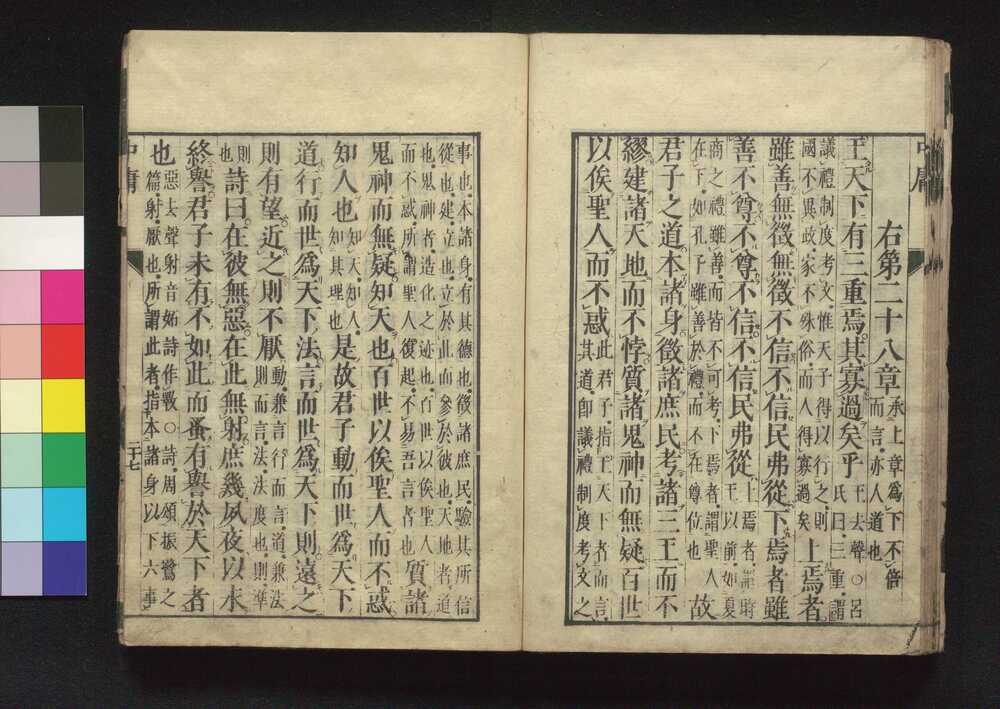 右第二十八章承上章爲下不倍
而言亦人道也
王天下有三重焉其寡過矣乎王去聲○呂
氏曰三重謂
議禮制度考文惟天子得以行之則
國不異政家不殊俗而人得寡過矣上焉者
雖善無徵無徵不信不信民弗從下焉者雖
善不尊不尊不信不信民弗從上焉者謂時
王以前如夏
商之禮雖善而皆不可考下焉者謂聖人
在下如孔子雖善於禮而不在尊位也故
君子之道本諸身徵諸庶民考諸三王而不
繆建諸天地而不悖質諸鬼神而無疑百世
以俟聖人而不惑此君子指王天下者而言
其道卽議禮制度考文之
事也本諸身有其德也徵諸庶民驗其所信
從也建立也立於此而參於彼也天地者道
也鬼神者造化之迹也百世以俟聖人
而不惑所謂聖人復起不易吾言者也質諸
鬼神而無疑知天也百世以俟聖人而不惑
知人也知天知人
知其理也是故君子動而世爲天下
道行而世爲天下法言而世爲天下則遠之
則有望近之則不厭動兼言行而言道兼法
則而言法法度也則準
則
也詩曰在彼無惡在此無射庶幾夙夜以永
終譽君子未有不如此而蚤有譽於天下者
也惡去聲射音妬詩作斁○詩周頌振鷺之
篇射厭也所謂此者指本諸身以下六事
中庸
二十七